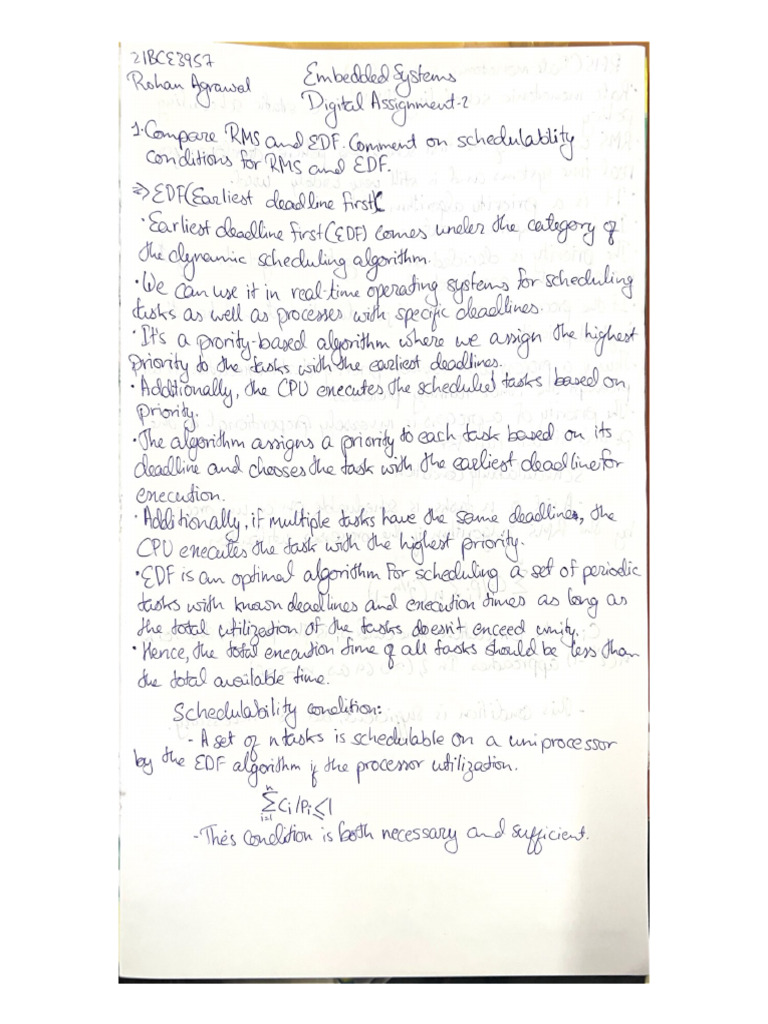 21BCE3957
Rohan Agrawal
Embedded Systems
Digital Assignment-2
1. Compare RMS and EDF. Comment on schedulablity
conditions for RMS and EDF.
=> EDF(Earliest deadline first)
· Earliest deadline first(EDF) comes under the category of
the dynamic scheduling algorithm.
· We can use it in real-time operating systems for scheduling
tasks as well as processes with specific deadlines.
· It's a prority-based algorithm where we assign the highest
priority to the tasks with the earliest deadlines.
· Additionally, the CPU executes the scheduled tasks based on
priority.
· The algorithm assigns a priority to each task based on its
deadline and chooses the task with the earliest deadline for
execution.
· Additionally, if multiple tasks have the same deadlines, the
CPU executes the task with the highest priority.
· EDF is an optimal algorithm for scheduling a set of periodic
tasks with known deadlines and execution times as long as
the total utilization of the tasks doesn't exceed unity.
· Hence, the total execution time of all tasks should be less than
the total available time.
Schedulability condition:
- A set of n tasks is schedulable on a uniprocessor
by the EDF algorithm if the processor utilization.
n∑i=1 Ci/Pi ≤ 1
- This condition is both necessary and sufficient.